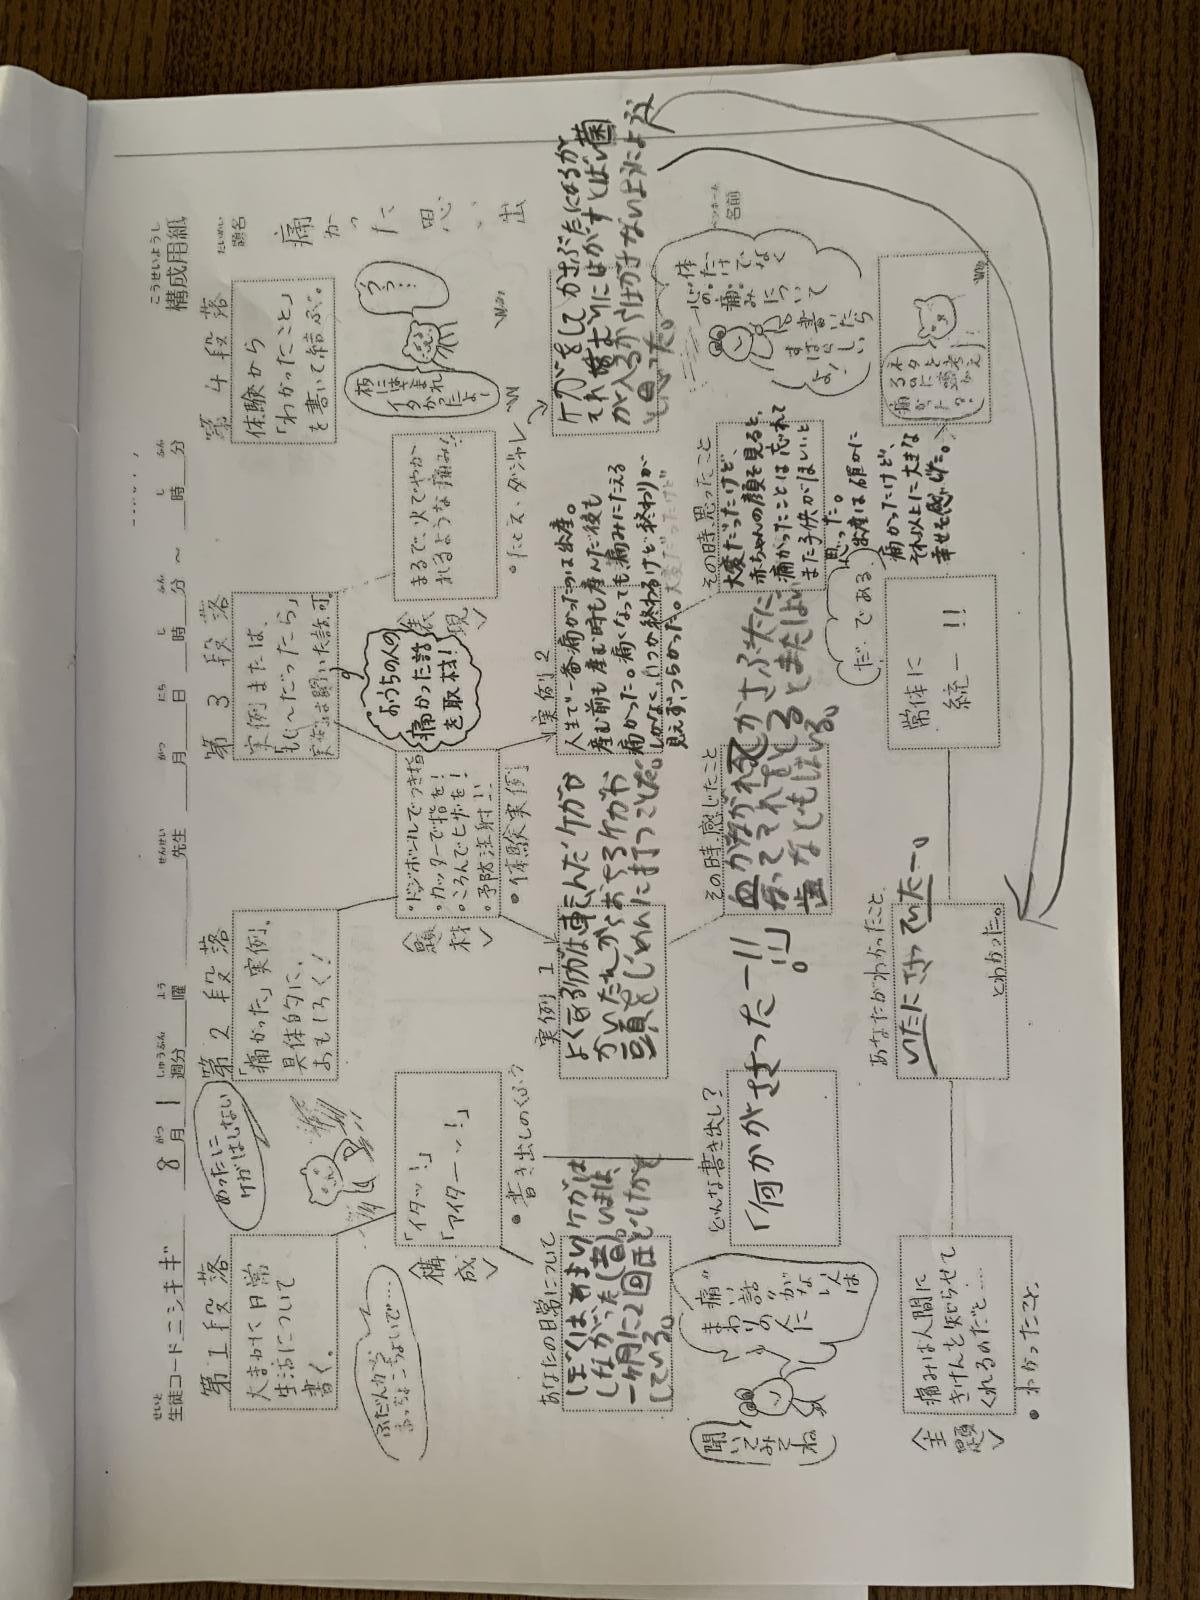 こうせいようし
構成用紙
だいめい
題名
痛かった思い出
ペンネーム
名前
せいと
生徒コード ニシキギ
8月1週分
がつ
しゅうぶん
よう
曜
せんせい
先生
がつ
月
にち
日
じ
時
ふん
分
～
じ
時
ふん
分
第1段落
大まかに日常
生活について
書く。
めったに
ケガはしない
ふだんから
おっちょこちょいで…
第2段落
「痛かった」実例。
具体的に、
おもしろく!
第3段落
実例または、
「もし～だったら」
実例は聞いた話可。
第4段落
体験から
「わかったこと」
を書いて結ぶ。
うっ!
〈構成〉
「イタッ!」
「アイターッ!」
●書き出しのくふう
〈題材〉
・ドッジボールでつき指
・カッターで指を!
・ころんでヒザを!
・予防注射!!
●体験実例
おうちの人の
痛かった話
を取材!
〈表現〉
まるで、火でやか
れるような痛み!!
●たとえ・ダジャレ
あなたの日常について
ぼくはあまりケガは
しなかった(昔)。いまは、
一ヶ月に2回ほどしけがを
している。
実例1
頭をじめんに打つことだ。
実例2
人生で一番痛かったのは出産。
産む前も産む時も産んだ後も
痛かった。痛くなっても痛みにたえる
しかなく、いつか終わるけど終わりが
見えずつらかった。
ケガをしてかさぶたになるが
と思った。
まわりの人に
痛い話
がない人は
聞いてみてね
どんな書き出し?
「何かがささったー!!」
その時、感じたこと
その時、思ったこと
大変だったけど、
赤ちゃんの顔を見ると、
痛かったことは忘れて
また子供がほしいと
思った。
出産は確かに
痛かったけど、
それ以上に大きな
幸せを感じた。
体だけでなく
心の痛み
について
書いたら
すばらしい
よ!
〈主題〉
痛みは人間に
きけんを知らせて
くれるのだと…
●わかったこと
あなたがわかったこと
とわかった。
「だ・である」
常体に
統一!!